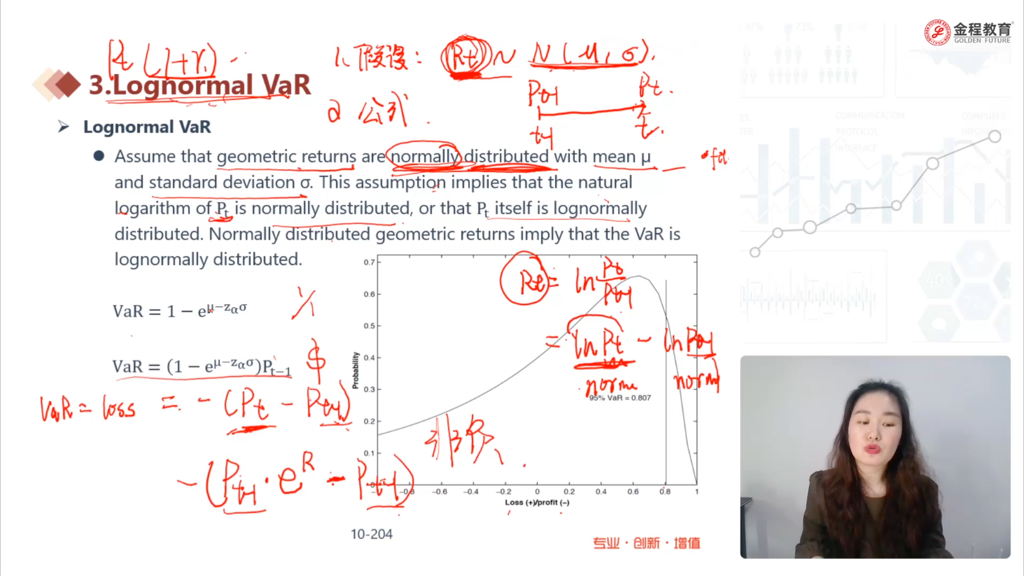 金程教育
GOLDEN FUTURE
Pt (1+r)
1. 假设: Rt ~ N(μ, σ).
3.Lognormal VaR
Pt-1 Pt.
2 公式.
t-1 t.
Lognormal VaR
Assume that geometric returns are normally distributed with mean μ
and standard deviation σ. This assumption implies that the natural
logarithm of Pt is normally distributed, or that Pt itself is lognormally
distributed. Normally distributed geometric returns imply that the VaR is
lognormally distributed.
Rt = ln Pt/Pt-1
= ln Pt - ln Pt-1
VaR = 1 − e^μ−zασ
VaR = (1 − e^μ−zασ)Pt−1 $
VaR = loss = -(Pt - Pt-1)
-(Pt-1 · e^R - Pt-1)
非负
0.7
0.6
0.5
0.4
0.3
0.2
0.1
Probability
95% VaR = 0.807
−0.8 −0.6 −0.4 −0.2 0 0.2 0.4 0.6 0.8 1
Loss (+)/profit (−)
10-204
专业·创新·增值